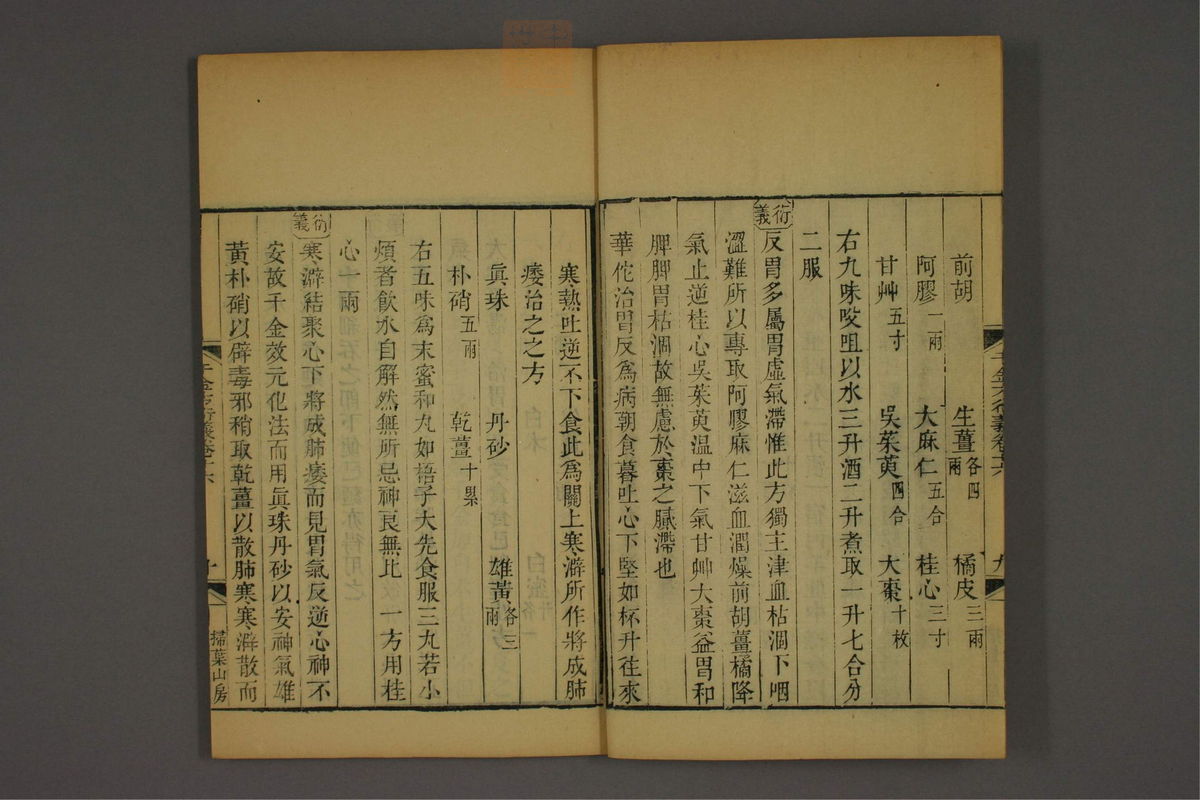 前胡　生薑各四兩　橘皮三兩
阿膠一兩　大麻仁五合　桂心三寸
甘艸五寸　吳茱萸四合　大棗十枚
右九味㕮咀以水三升酒二升煮取一升七合分
二服
衍義
反胃多屬胃虛氣滯惟此方獨主津血枯涸下咽
澀難所以專取阿膠麻仁滋血潤燥前胡薑橘降
氣止逆桂心吳茱萸温中下氣甘艸大棗益胃和
脾脾胃枯涸故無慮於棗之膩滯也
華佗治胃反爲病朝食暮吐心下堅如杯升往來
寒熱吐逆不下食此爲關上寒澼所作將成肺
痿治之之方
眞珠　丹砂　雄黃各三兩
朴硝五兩　乾薑十累
右五味爲末蜜和丸如梧子大先食服三丸若小
煩者飲水自解然無所忌神良無比　一方用桂
心一兩
衍義
寒澼結聚心下將成肺痿而見胃氣反逆心神不
安故千金效元化法而用眞珠丹砂以安神氣雄
黃朴硝以辟毒邪稍取乾薑以散肺寒寒澼散而
千金方衍義卷十六
十
掃葉山房